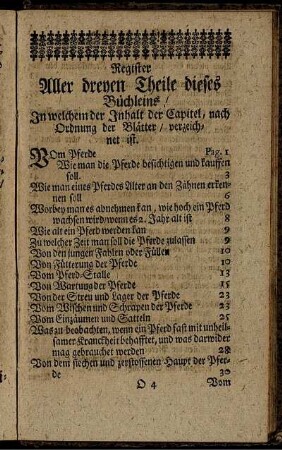 Register
Aller dreyen Theile dieses
Büchleins/
In welchem der Inhalt der Capitel, nach
Ordnung der Blätter/ verzeich-
net ist.
VOm Pferde Pag. 1
Wie man die Pferde besichtigen und kauffen
soll. 3
Wie man eines Pferdes Alter an den Zähnen erken-
nen soll 6
Worbey man es abnehmen kan, wie hoch ein Pferd
wachsen wird/ wenn es 2. Jahr alt ist 8
Wie alt ein Pferd werden kan 9
Zu welcher Zeit man soll die Pferde zulassen 9
Von den jungen Fahlen oder Füllen 10
Von Fütterung der Pferde 10
Vom Pferd-Stalle 13
Von Wartung der Pferde 15
Von der Streu und Lager der Pferde 23
Vom Wischen und Schrapen der Pferde 23
Vom Einzäumen und Satteln 25
Was zu beobachten, wenn ein Pferd fast mit unheil-
samer Kranckheit behafftet, und was darwider
mag gebrauchet werden 28
Von dem siechen und zerstossenen Haupt der Pfer-
de 30
O 4 Vom